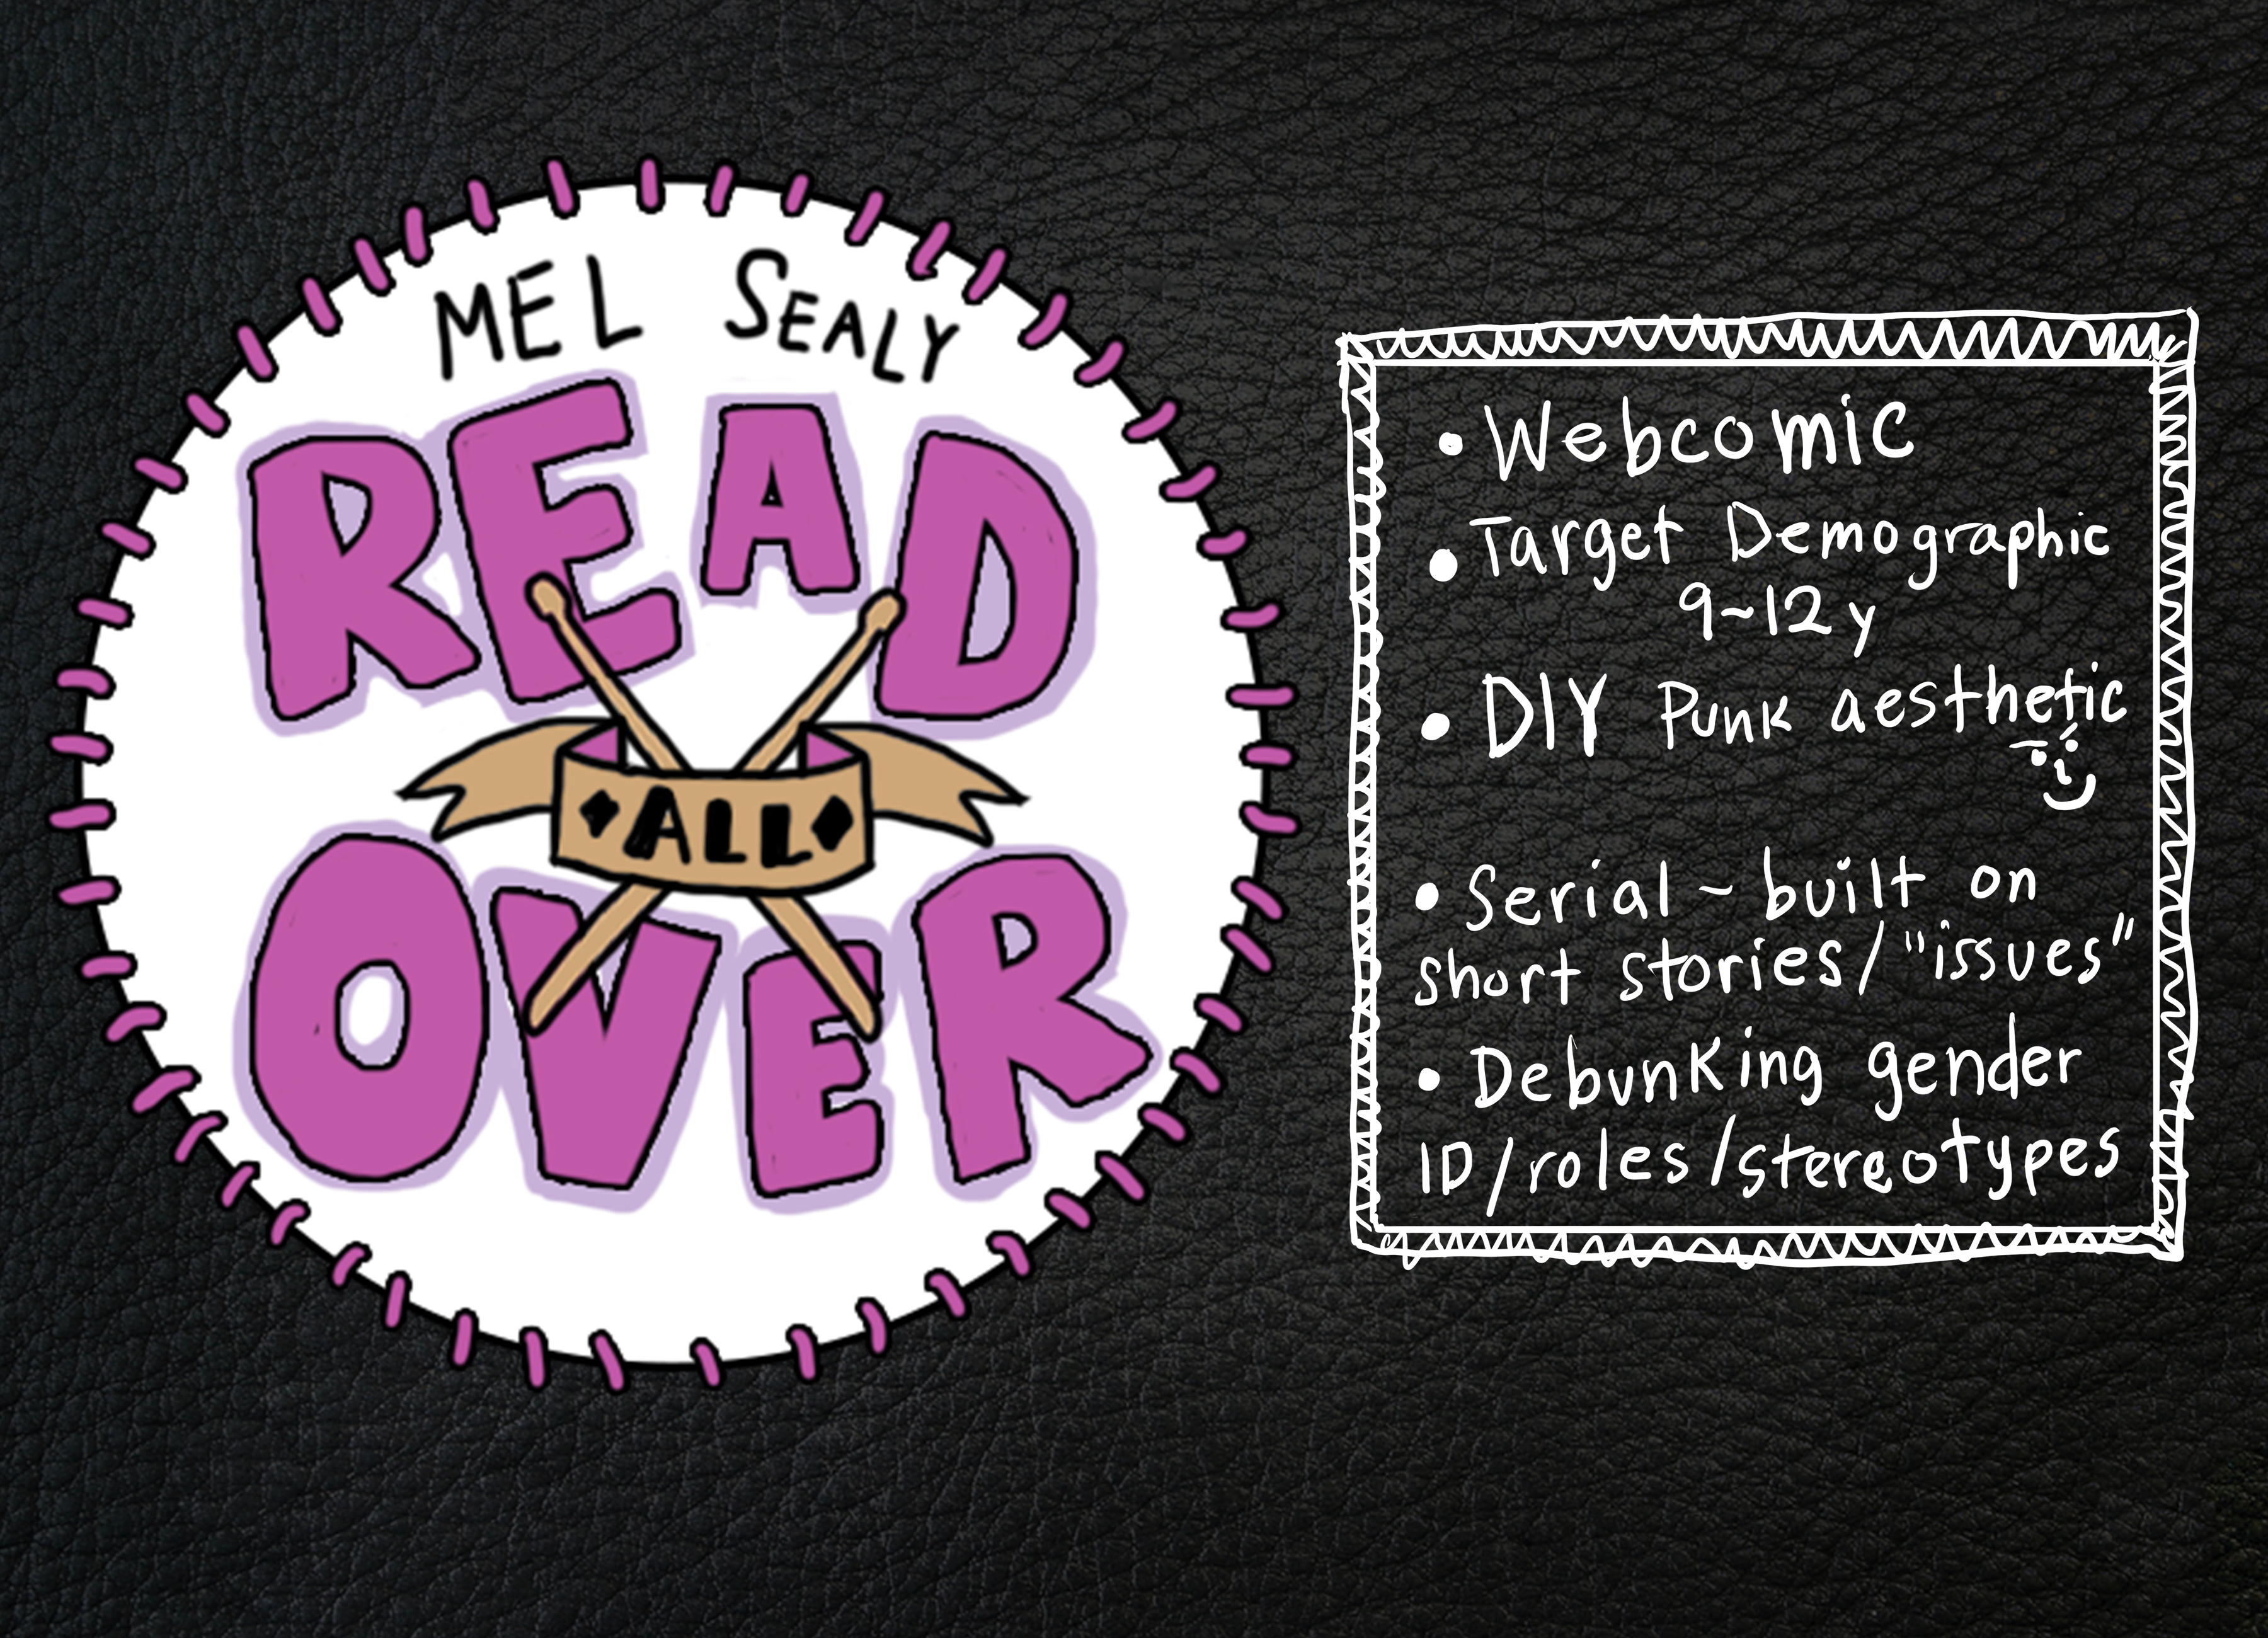 MEL SEALY
READ
ALL
OVER
• Webcomic
• Target Demographic
9~12y
• DIY Punk aesthetic
• Serial ~ built on
short stories/"issues"
• Debunking gender
ID/roles/stereotypes